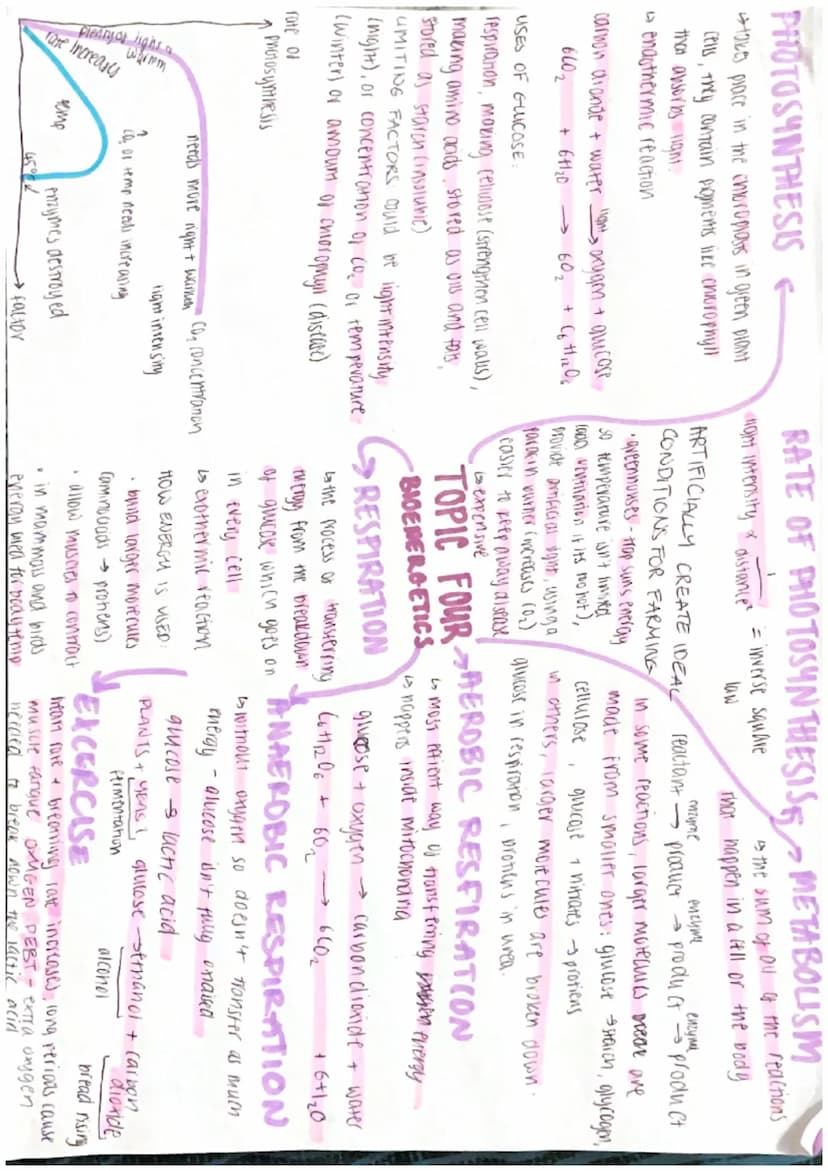 PHOTOSYNTHESIS
↳ takes place in the chloroplasts in green plant
cells, they contain pigments like chlorophyll
that absorbs light.
↳ endothermic reaction
carbon dioxide + water —light→ oxygen + glucose
6CO₂ + 6H₂O → 6O₂ + C₆H₁₂O₆
USES OF GLUCOSE:
respiration, making cellulose (strengthen cell walls),
making amino acids, stored as oils and fats,
stored as starch (insoluble)
LIMITING FACTORS could be light intensity
(night), or concentration of CO₂ or temperature
(winter) or amount of chlorophyll (disease)
rate of
photosynthesis
needs more light + warmth
CO₂ concentration
light intensity
CO₂ or temp needs increasing
plenty of light + warmth
rate increases
temp
45°C
enzymes destroyed
factor
RATE OF PHOTOSYNTHESIS
light intensity ∝ 1/distance² = inverse square
law
ARTIFICIALLY CREATE IDEAL
CONDITIONS FOR FARMING
• greenhouses - trap suns energy
so temperature isn't limited
(add ventilation if its too hot),
provide artificial light, using a
paraffin burner (increases CO₂)
easier to keep away disease
↳ expensive
TOPIC FOUR
BIOENERGETICS
RESPIRATION
↳ the process of transferring
energy from the breakdown
of glucose which goes on
in every cell
↳ exothermic reaction
HOW ENERGY IS USED:
• build larger molecules
(amino acids → protiens)
• allow muscles to contract
• in mammals and birds
energy used for body temp
METABOLISM
↳ the sum of all of the reactions
that happen in a cell or the body
enzyme enzyme enzyme
reactant → product → product → product
in some reactions, larger molecules are
made from smaller ones: glucose → starch, glycogen,
cellulose, glucose + nitrates → protiens
in others, larger molecules are broken down:
glucose in respiration, protiens in urea.
AEROBIC RESPIRATION
↳ most efficient way of transferring energy
↳ happens inside mitochondria
glucose + oxygen → carbon dioxide + water
C₆H₁₂O₆ + 6O₂ → 6CO₂ + 6H₂O
ANAEROBIC RESPIRATION
↳ without oxygen so doesn't transfer as much
energy - glucose isn't fully oxidised
glucose → lactic acid
PLANTS + YEAST glucose → ethanol + carbon
dioxide
fermentation
alcohol
bread rising
EXCERCISE
heart rate + breathing rate increases, long periods cause
muscle fatigue. OXYGEN DEBT - extra oxygen
needed to break down the lactic acid